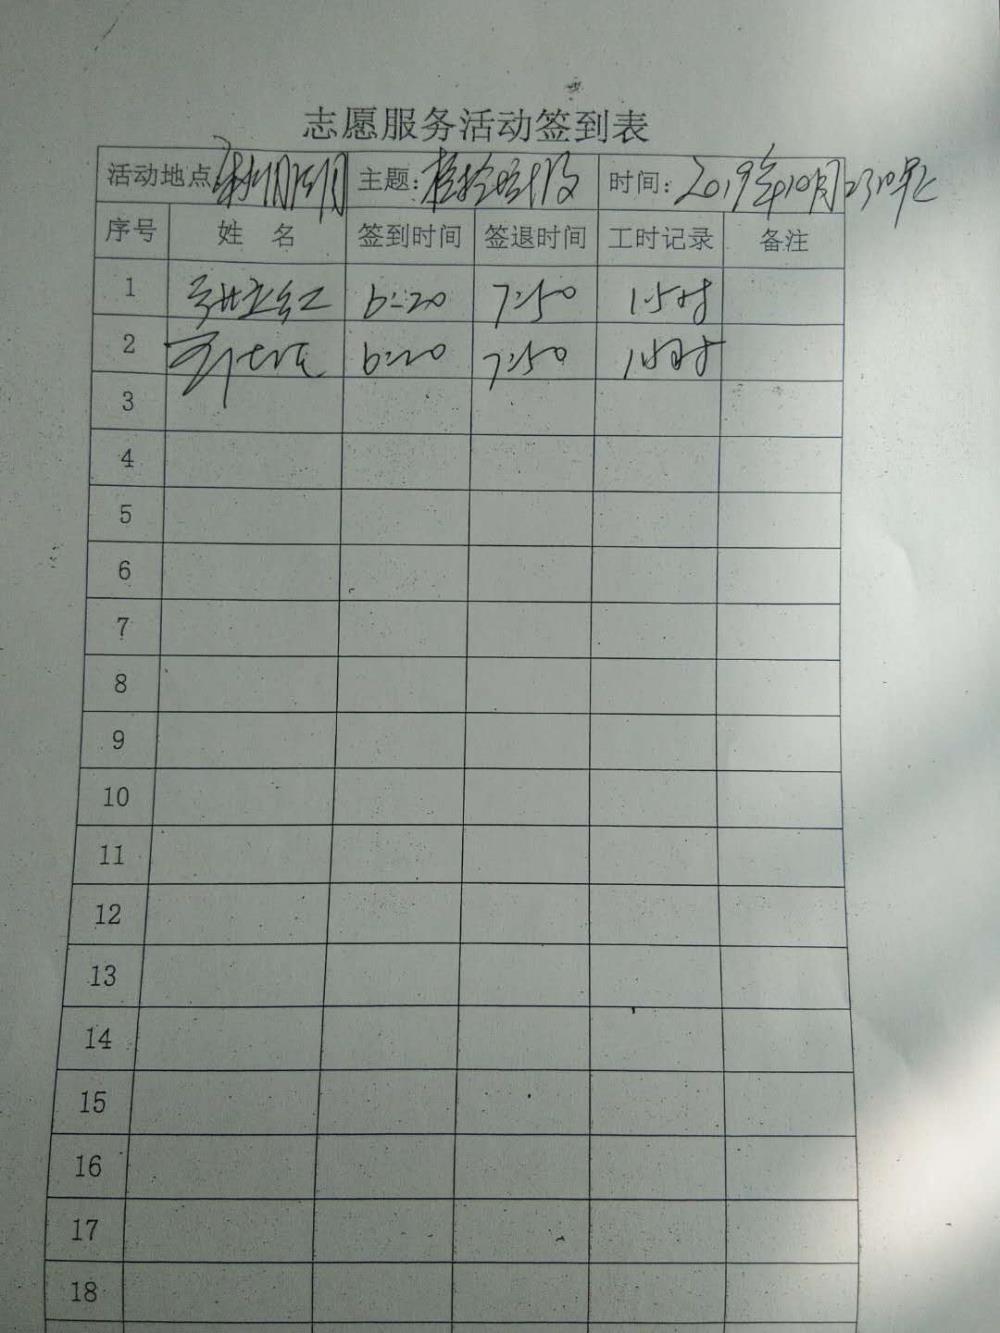 志愿服务活动签到表
活动地点 主题: 时间: 2019年10月23日早
序号 姓 名 签到时间 签退时间 工时记录 备注
1 6:20 7:50 1.5时
2 6:20 7:50 1.5时
3
4
5
6
7
8
9
10
11
12
13
14
15
16
17
18